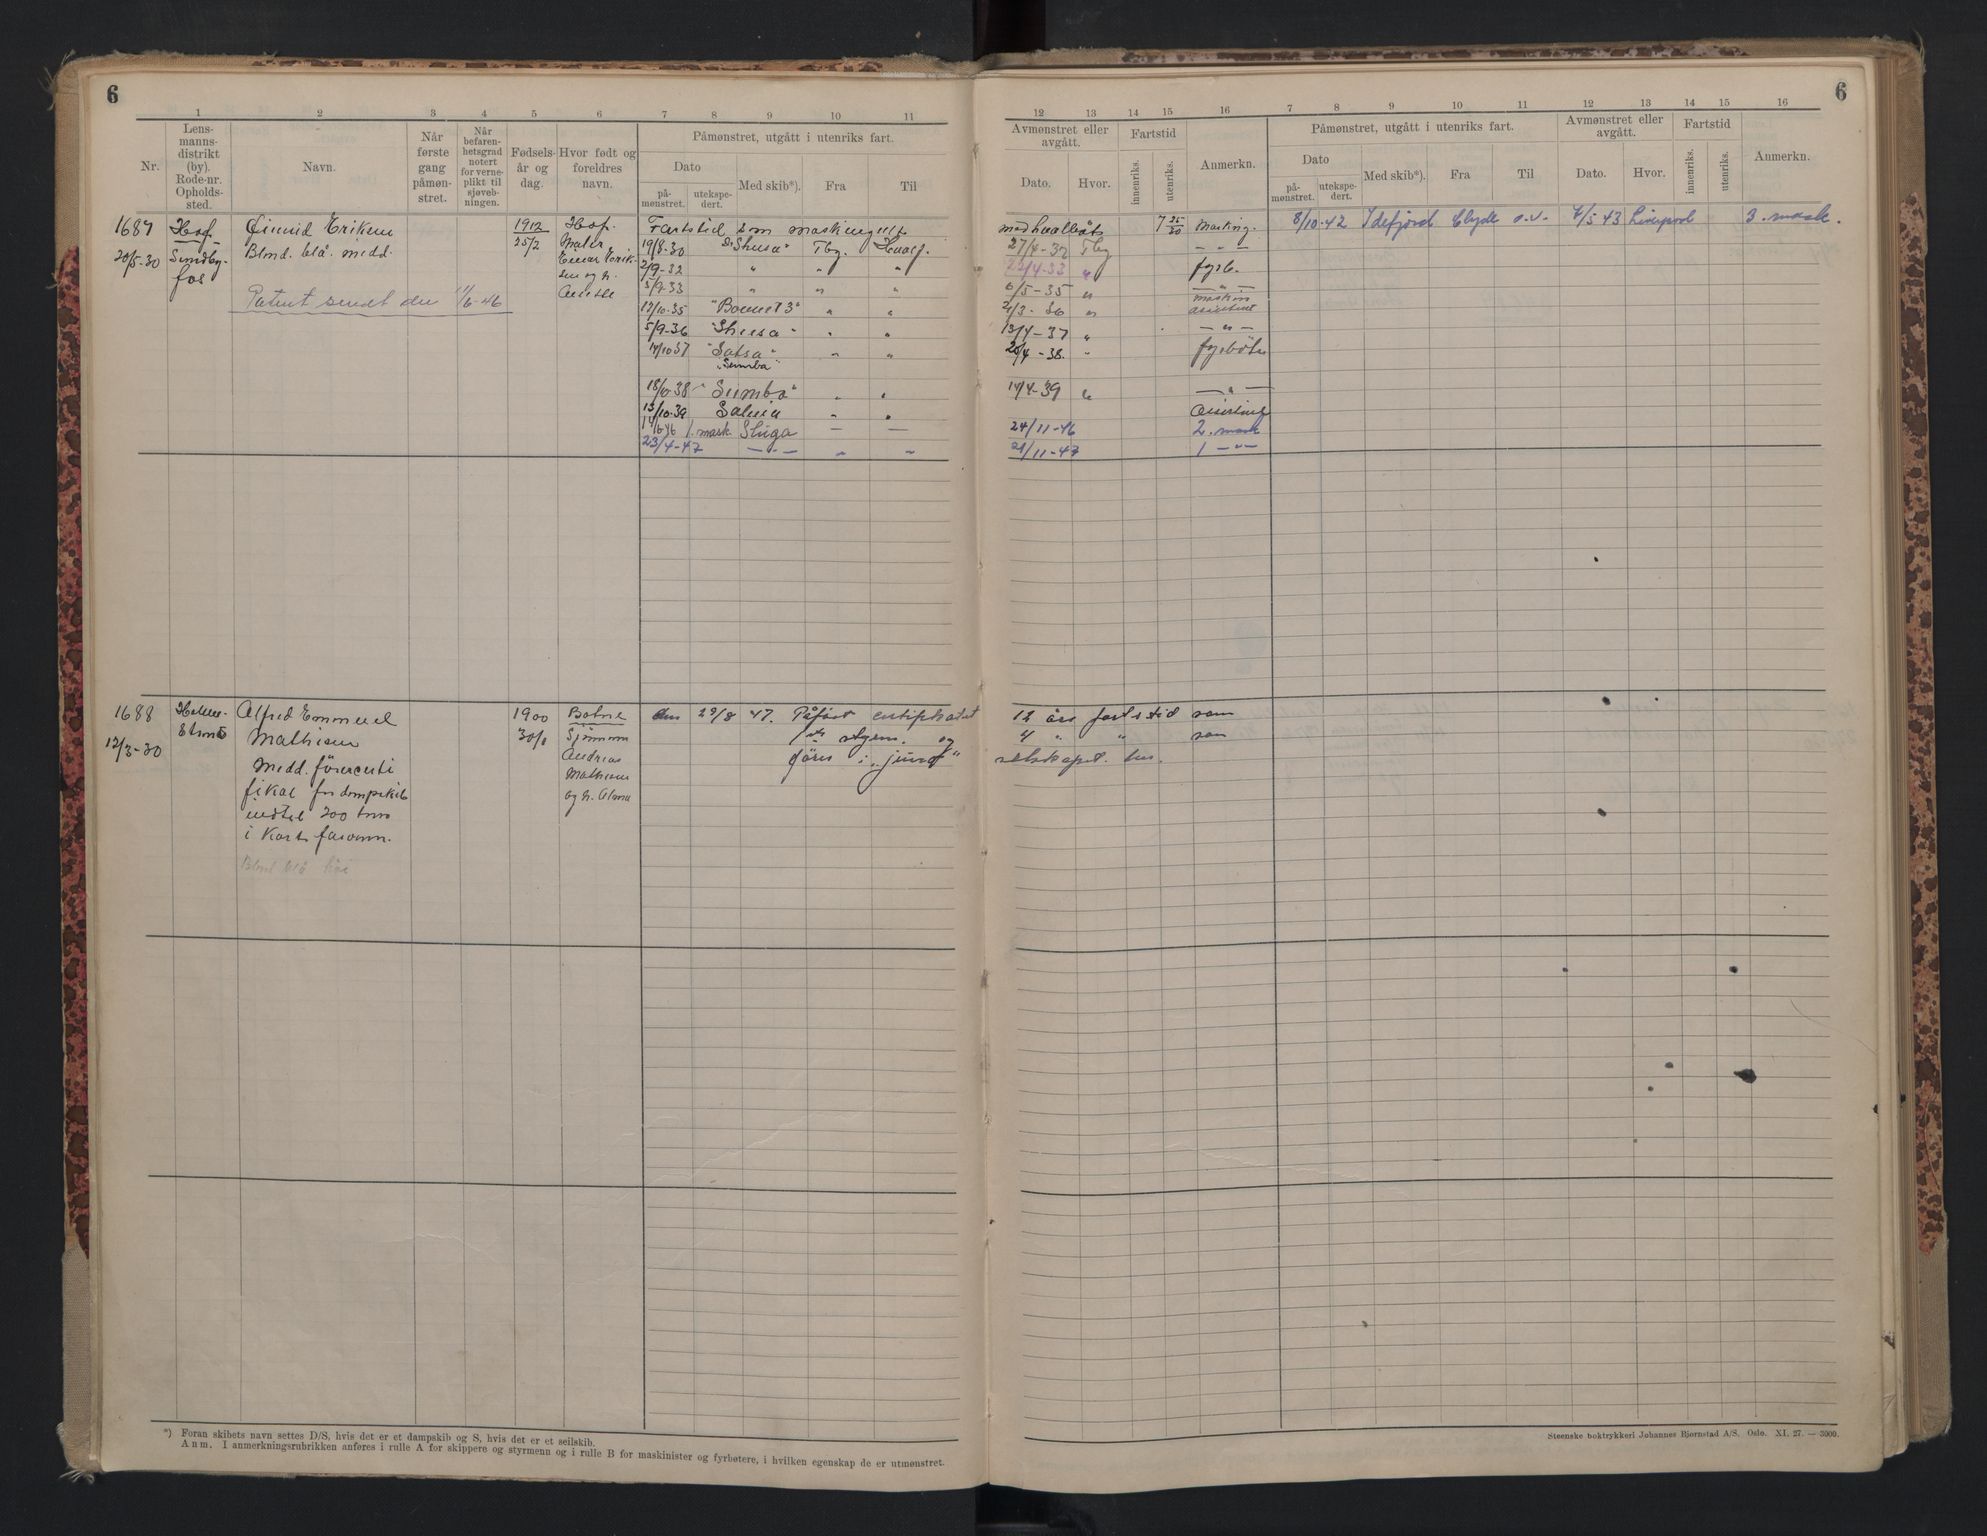 6
6
1 2 3 4 5 6 7 8 9 10 11
12 13 14 15 16 7 8 9 10 11 12 13 14 15 16
Nr.
Lens-
manns-
distrikt
(by).
Rode-nr.
Opholds-
sted.
Navn.
Når
første
gang
påmøn-
stret.
Når
befaren-
hetsgrad
notert
for verne-
plikt til
sjøveb-
ningen.
Fødsels-
år og
dag.
Hvor født og
foreldres
navn.
Påmønstret, utgått i utenriks fart.
Dato
på-
mønstret.
utekspe-
dert.
Med skib*).
Fra
Til
Avmønstret eller
avgått.
Dato.
Hvor.
Fartstid
innenriks.
utenriks.
Anmerkn.
Påmønstret, utgått i utenriks fart.
Dato
på-
mønstret.
utekspe-
dert.
Med skib*).
Fra
Til
Avmønstret eller
avgått.
Dato.
Hvor.
Fartstid
innenriks.
utenriks.
Anmerkn.
1687
20/5-30
Hof
Sundby-
fos
Eriksen
Blmd. blå. medd.
Patent sendt den 11/6-46
1912
25/2
Hof.
Maler
Einar Erik-
sen og h.
Fartstid som
med hvalbåt
19/8-30 Tbg. Hvalf. 27/4-32 Tbg
2/9-32 " " " fyrb.
5/9-33 " " " 6/5-35 " maskin
17/10-35 " " assistent
5/9-36 " " 13/4-37 "
14/10 37 " " 20/4-38 " fyrbøter
"Sumba"
18/10-38 "Sumba" " " 14/4-39 "
13/10-39 " "
1. mask. Sluga — — 24/11-46 2. mask
23/4-47 — " — " " 21/11-47 1 — " —
8/10-42 Idefjord Clyde o.v. 7/5 43 Liverpool 3. mask.
1688
12/3-30
Alfred Emmanuel
Mathisen
Medd. førercerti
fikat for dampskib
indtil 200 tons
i kort farvann.
Blmd blå
1900
30/8
Botne
Sjømann
Andreas
Mathisen
og h. Alma
den 29/8 47. Påført certifikatet 12 års fartstid som
og 4 " " som
*) Foran skibets navn settes D/S, hvis det er et dampskib og S, hvis det er et seilskib.
Anm. I anmerkningsrubrikken anføres i rulle A for skippere og styrmenn og i rulle B for maskinister og fyrbøtere, i hvilken egenskap de er utmønstret.
Steenske boktrykkeri Johannes Bjørnstad A/S. Oslo. XI. 27. — 3000.